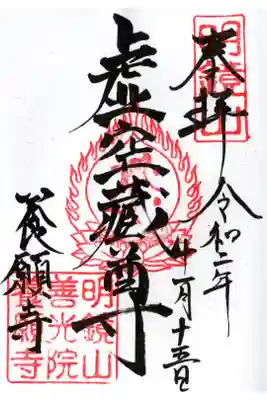 明鏡山
奉拝
令和二年
十一月十五日
虚空藏尊
養願寺
明鏡山
善光院
養願寺